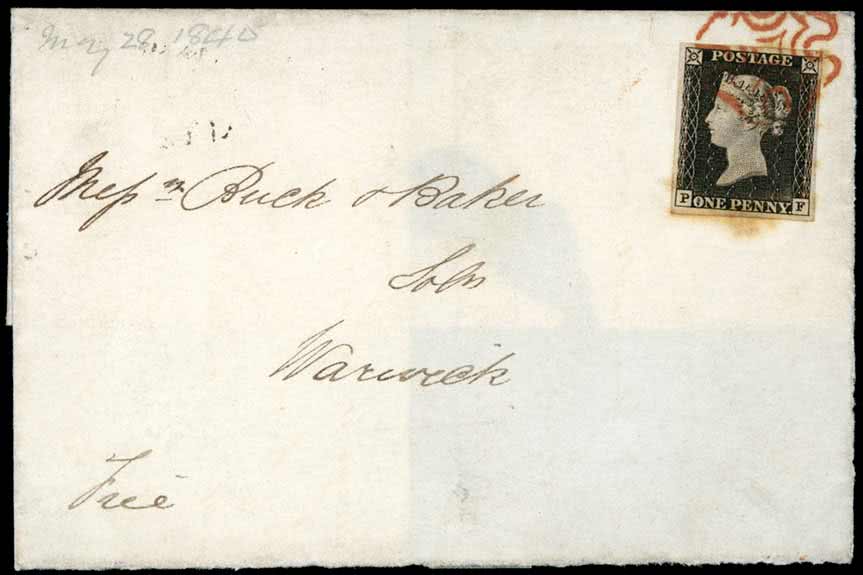 May 28 1840
POSTAGE
P ONE PENNY. F
Mess<sup>rs</sup> Buck & Baker
Sol<sup>rs</sup>
Warwick
Free